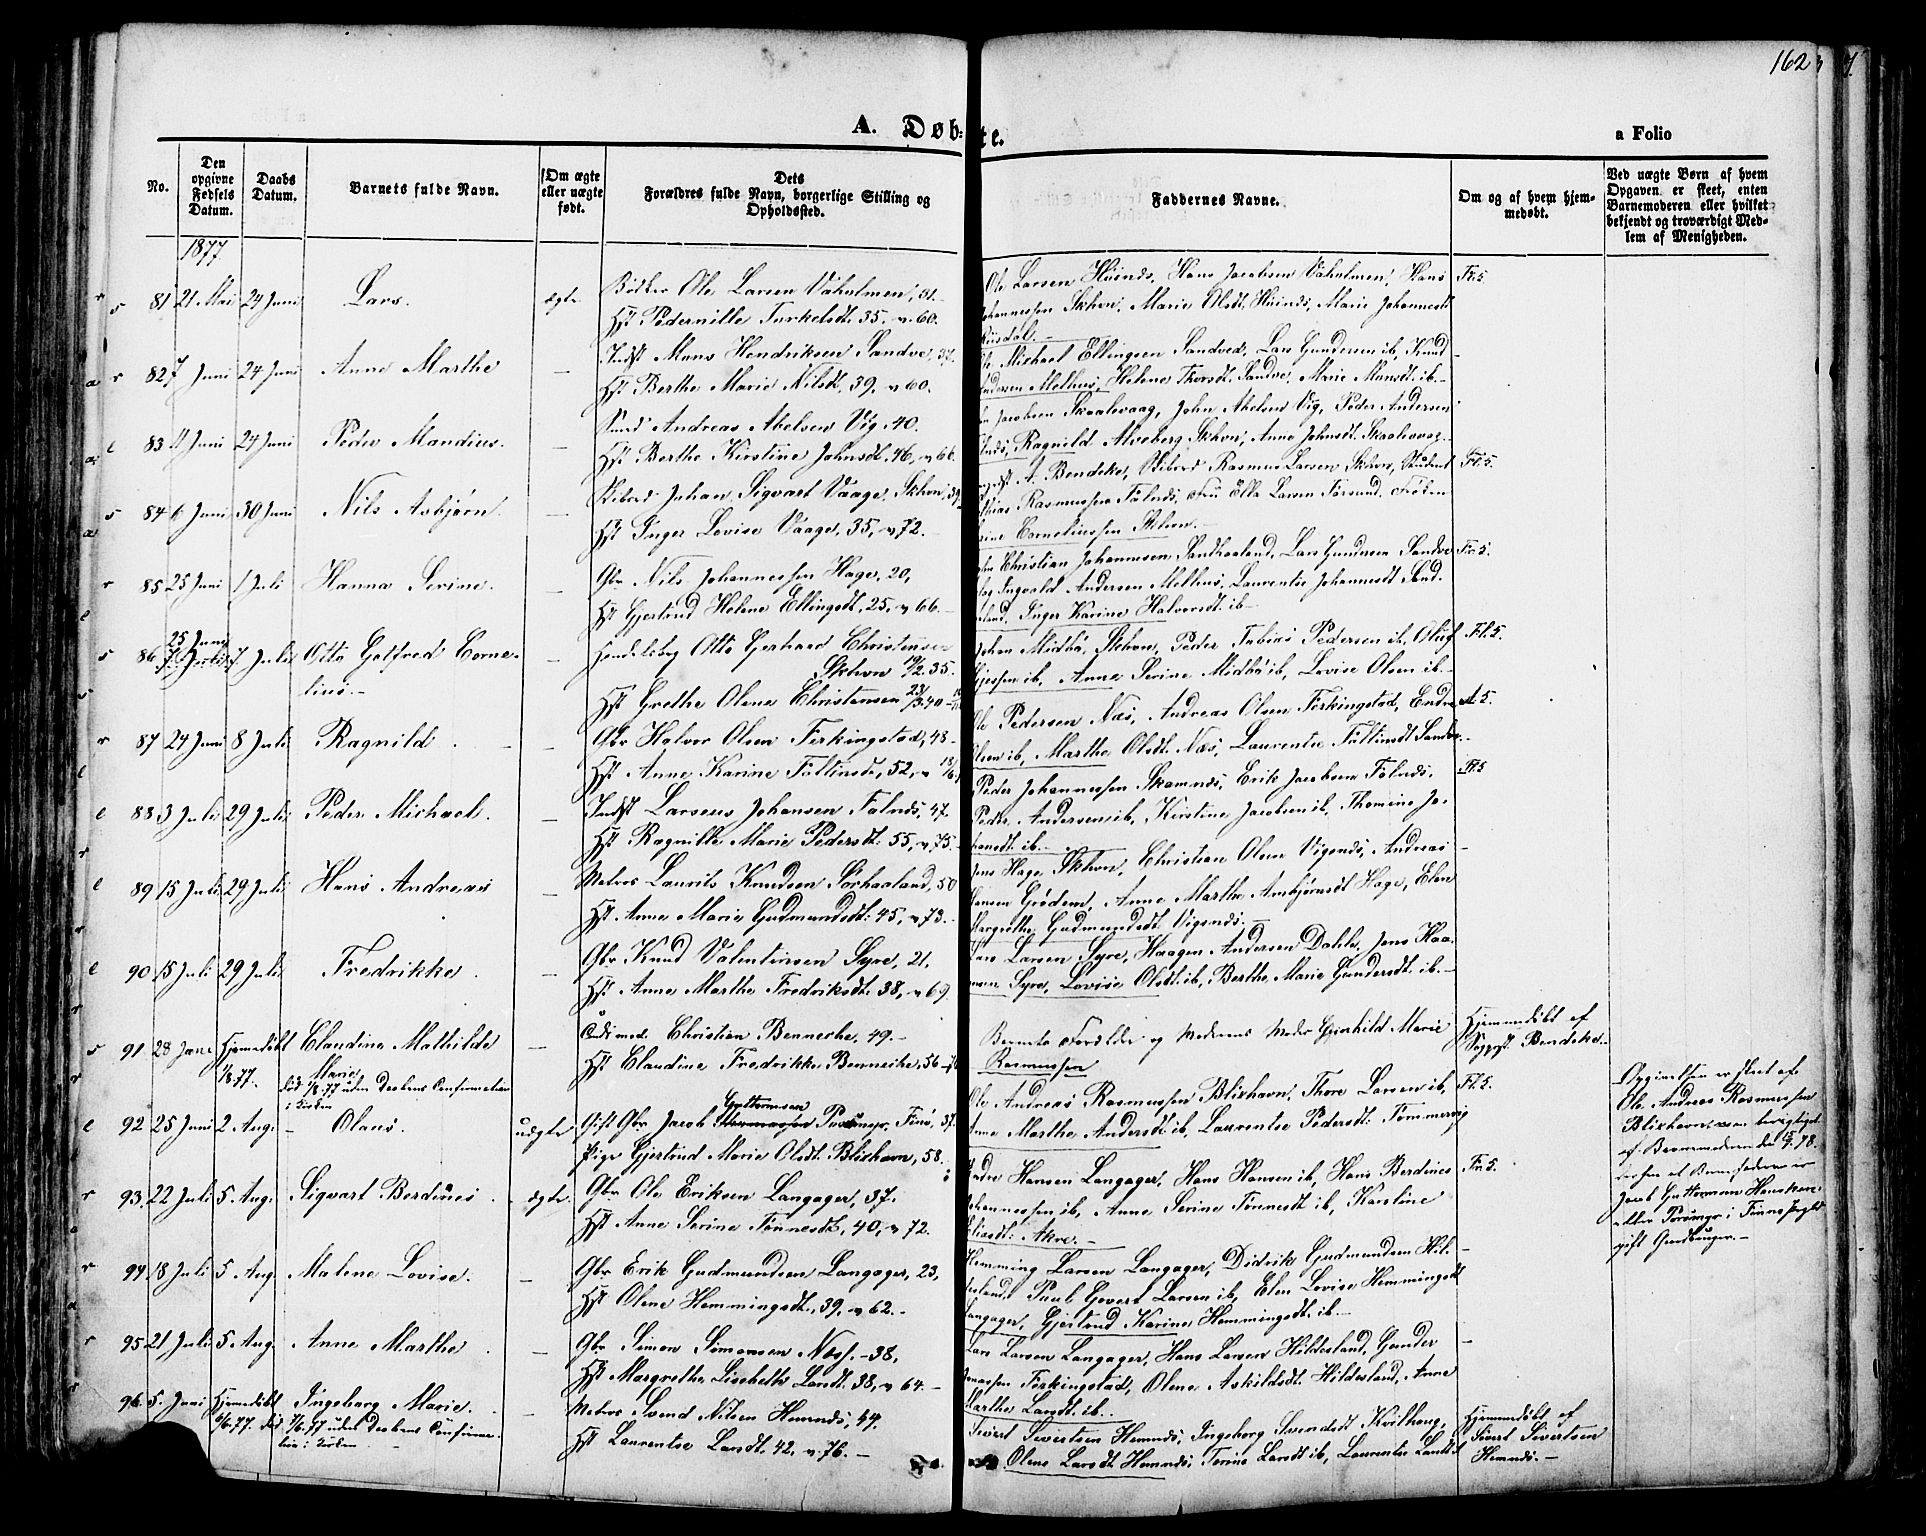 162
A. Døbte.
a Folio
No.
Den opgivne Fødsels Datum.
Daabs Datum.
Barnets fulde Navn.
Om ægte eller uægte født.
Dets Forældres fulde Navn, borgerlige Stilling og Opholdssted.
Faddernes Navne.
Om og af hvem hjemmedøbt.
Ved uægte Børn af hvem Opgaven er skeet, enten Barnemoderen eller hvilket bekjendt og troværdigt Medlem af Menigheden.
1877
81 21 Mai 24 Juni Lars. ægte Bødker Ole Larsen Vaholmen, 31.
Hst Pedernille Turkelsdt. 35. v. 60.
Ole Larsen Høinds, Hans Jacobsen Vaholmen, Hans
Johannessen Skhvn, Marie Olsdt. Høinds, Marie Johannesdt
82 7 Juni 24 Juni Anne Marthe — Indst Mons Hendriksen Sandve, 37.
Hst Berthe Marie Nilsdt. 39. v 60.
Michael Ellingsen Sandved, Lars Gundersen ib, Knud
Andersen Melhus, Helene Thorsdt. Sandve, Marie Monsdt. ib.
83 11 Juni 24 Juni Peder Mandius. — Andreas Abelsen Vig. 40.
Hst Berthe Kirstine Johnsdt. 46, v 66.
Jacobsen Skaalevaag, John Abelsen Vig, Peder Andersen
Ragnild Alveberg Skhvn, Anne Johnsdt. Skaalevaag
84 6 Juni 30 Juni Nils Asbjørn. — Johan Sigvart Vaage, Skhvn, 39
Hst Inger Lovise Vaage, 35, v 72.
A. Bendeke, Rasmus Larsen Skhvn, Student
Rasmussen Falnds, Fru Ella Larsen Førsund, Frøken
Corneliussen Skhvn.
85 25 Juni 1 Juli Hanna Serine. — Gbr Nils Johannessen Hage, 20,
Hst Gjertrud Helene Ellingsdt, 25, v 66.
Christian Johannesen Sandhaaland, Lars Gundersen Sandve
Ingvald Andersen Melhus, Laurentse Johannesdt Sand.
Inger Karine Halvorsdt ib
86 25 Juni 7 Juli Otto Gotfred Corne-
lius. — Handelsbog Otto Gerhard Christensen
Skhvn 19/2 35.
Hst Grethe Olene Christensen 23/3 40
Midbø, Skhvn, Peder Tobias Pedersen ib, Oluf
Gjessen ib, Anne Serine Midbø ib, Lovise Olsen ib.
87 24 Juni 8 Juli Ragnild. — Gbr Halvor Olsen Ferkingstad, 48
Hst Anne Karine Foltinsdt, 52, v 18/6
Ole Pedersen Næs, Andreas Olsen Ferkingstad, Endre
Olsen ib, Marthe Olsdt. Næs, Laurentse Foltinsdt Sandve.
88 3 Juli 29 Juli Peder Michael. — Indst Larseus Johansen Falnds, 47.
Hst Ragnille Marie Pedersdt. 55, v. 75.
Peder Johannessen Skamnds, Erik Jacobsen Falnds,
Peder Andersen ib, Kirstine Jacobsen ib, Thomine Jo-
hansdt ib.
89 15 Juli 29 Juli Hans Andreas — Matros Laurits Knudsen Sørhaaland, 50
Hst Anne Marie Gudmundsdt. 45, v 73.
Jens Hage, Skhvn, Christian Olsen Vigsnds, Andreas
Hansen Grødem, Anne Marthe Ambjørnsdt Hage, Elen
Margrethe Gudmundsdt Vigsnds.
90 15 Juli 29 Juli Fredrikke. — Gbr Knud Valentinsen Syre, 21,
Hst Anne Marthe Fredriksdt. 38, v 69.
Lars Larsen Syre, Haagen Andersen Dahle, Jens Haa-
gensen Syre, Lovise Olsdt. ib, Berthe Marie Gundersdt. ib.
91 28 Jan. Hjemmedøbt 1/8.77. Claudine Mathilde
Marie
død 1/8.77 uden Daabens Confirmation
i Kirken — Christian Benneche, 49.
Hst Claudine Fredrikke Benneche, 56
Barnets Forældre og Moderens Moder Gunhild Marie
Rasmussen
Hjemmedøbt af
Sogpst. Bendeke.
92 25 Juni 2 Aug. Olaus. uægte Gift Gbr Jacob Guttormsen Porsmyr, Finø, 37.
Pige Gjertrud Marie Olsdt. Blixhavn, 58.
Ole Andreas Rasmussen Blixhavn, Thore Larsen ib,
Anne Marthe Andersdt. ib, Laurentse Pedersdt. Tømmervig
Opgivelsen er skeet af
Ole Andreas Rasmussen
Blixhavn, som bevidnet
af Barnemoderen den 15/7 78.
Jacob Guttormsen
eller Porsmyr i Finnø Prgld
gift Gaardbruger.
93. 22 Juli 5. Aug. Sigvart Berdines. ægte. Gbr Ole Eriksen Langager, 37.
Hst Anne Serine Tønnesdt, 40, v 72.
Endre Hansen Langager, Hans Hansen ib, Hans Berdines
Johannessen ib, Anne Serine Tønnesdt ib, Karoline
Eliasdt: Akre.
94 18 Juli 5 Aug. Malene Lovise. — Gbr Erik Gudmundsen Langager, 23,
Hst Olene Hemmingsdt, 39, v 62.
Hemming Larsen Langager, Didrik Gudmundsen Hil-
desland, Paul Govert Larsen ib, Elen Lovise Hemmingsdt
Langager, Gjertrud Karine Hemmingsdt. ib.
95 21 Juli 5 Aug. Anne Marthe — Gbr Simon Simonsen Næss. 38,
Hst Margrethe Lisebeth Larsdt. 38, v 64.
Lars Larsen Langager, Hans Larsen Hildesland, Gunder
Ferkingstad, Olene Askildsdt. Hildesland, Anne
Marthe Larsdt. ib.
96. 5. Juni Hjemmedøbt 6/6.77. Ingeborg Marie.
død 7/6.77 uden Daabens Confirma-
tion i Kirken — Matros Svend Nilsen Hemnds, 44.
Hst Laurentse Larsdt. 42, v. 76.
Sivert Sivertsen Hemnds, Ingeborg Svendsdt Kvilhaug,
Olene Larsdt Hemnds, Terine Larsdt ib, Laurentse Larsdt
Hjemmedøbt af
Sivert Sivertsen
Hemnds.